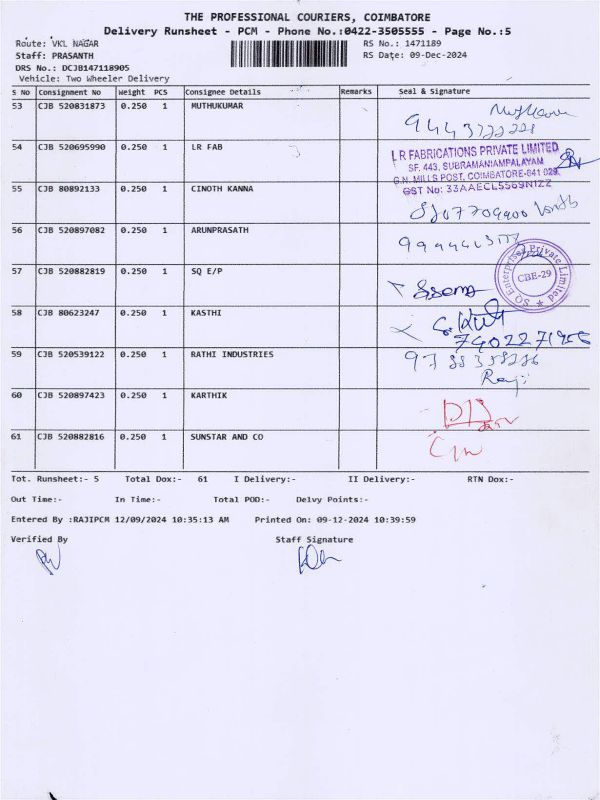 THE PROFESSIONAL COURIERS, COIMBATORE
Delivery Runsheet - PCM - Phone No.:0422-3505555 - Page No.:5
Route: VKL NAGAR RS No.: 1471189
Staff: PRASANTH RS Date: 09-Dec-2024
DRS No.: DCJB147118905
Vehicle: Two Wheeler Delivery
S No Consignment No Weight PCS Consignee Details Remarks Seal & Signature
53 CJB 520831873 0.250 1 MUTHUKUMAR
54 CJB 520695990 0.250 1 LR FAB
L R FABRICATIONS PRIVATE LIMITED
SF. 443, SUBRAMANIAMPALAYAM
G.N. MILLS POST, COIMBATORE-641 029.
GST No: 33AAECL5569N1ZZ
55 CJB 80892133 0.250 1 CINOTH KANNA
56 CJB 520897082 0.250 1 ARUNPRASATH
57 CJB 520882819 0.250 1 SQ E/P
SQ Enterprises Private Limited
CBE-29
58 CJB 80623247 0.250 1 KASTHI
59 CJB 520539122 0.250 1 RATHI INDUSTRIES
60 CJB 520897423 0.250 1 KARTHIK
61 CJB 520882816 0.250 1 SUNSTAR AND CO
Tot. Runsheet:- 5 Total Dox:- 61 I Delivery:- II Delivery:- RTN Dox:-
Out Time:- In Time:- Total POD:- Delvy Points:-
Entered By :RAJIPCM 12/09/2024 10:35:13 AM Printed On: 09-12-2024 10:39:59
Verified By Staff Signature